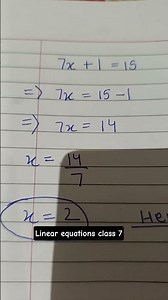 7x + 1 = 15
=> 7x = 15 - 1
=> 7x = 14
x = 14/7
x = 2
Linear equations class 7